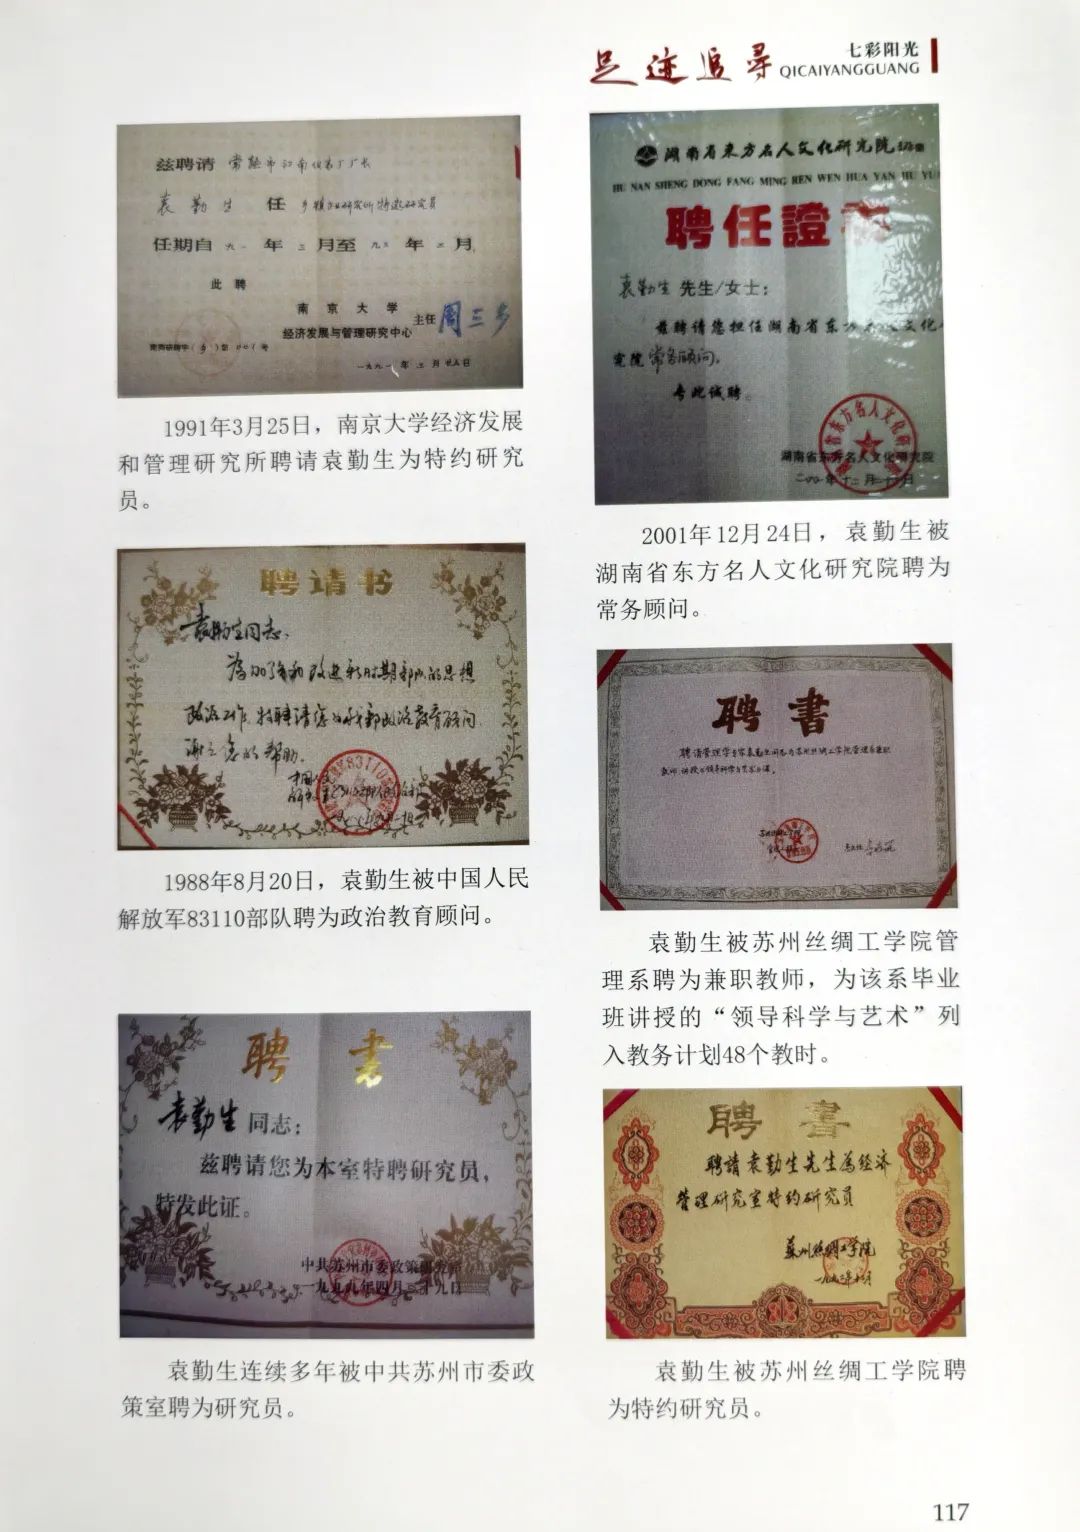 足迹追寻
七彩阳光
QICAIYANGGUANG
兹聘请 常熟市江南仪表厂厂长
袁勤生 任 乡镇企业研究所特邀研究员
任期自九一年三月至九三年三月
此聘
南京大学
经济发展与管理研究中心 主任 周三多
一九九一年三月廿五日
1991年3月25日，南京大学经济发展
和管理研究所聘请袁勤生为特约研究
员。
聘请书
袁勤生同志：
为加强和改进新时期部队的思想
政治工作，特聘请您为我部政治教育顾问，
谢谢您的帮助。
1988年8月20日，袁勤生被中国人民
解放军83110部队聘为政治教育顾问。
聘書
袁勤生同志：
兹聘请您为本室特聘研究员，
特发此证。
中共苏州市委政策研究室
一九九九年四月二十九日
袁勤生连续多年被中共苏州市委政
策室聘为研究员。
湖南省东方名人文化研究院
HU NAN SHENG DONG FANG MING REN WEN HUA YAN JIU YU
聘任證书
袁勤生先生/女士：
兹聘请您担任湖南省东方名人文化
究院常务顾问。
专此诚聘。
湖南省东方名人文化研究院
2001年12月24日，袁勤生被
湖南省东方名人文化研究院聘为
常务顾问。
聘書
聘请管理学专家袁勤生同志为苏州丝绸工学院管理系兼职
教师，讲授《领导科学与艺术》课。
袁勤生被苏州丝绸工学院管
理系聘为兼职教师，为该系毕业
班讲授的“领导科学与艺术”列
入教务计划48个教时。
聘書
聘请袁勤生先生为经济
管理研究室特约研究员
苏州丝绸工学院
袁勤生被苏州丝绸工学院聘
为特约研究员。
117